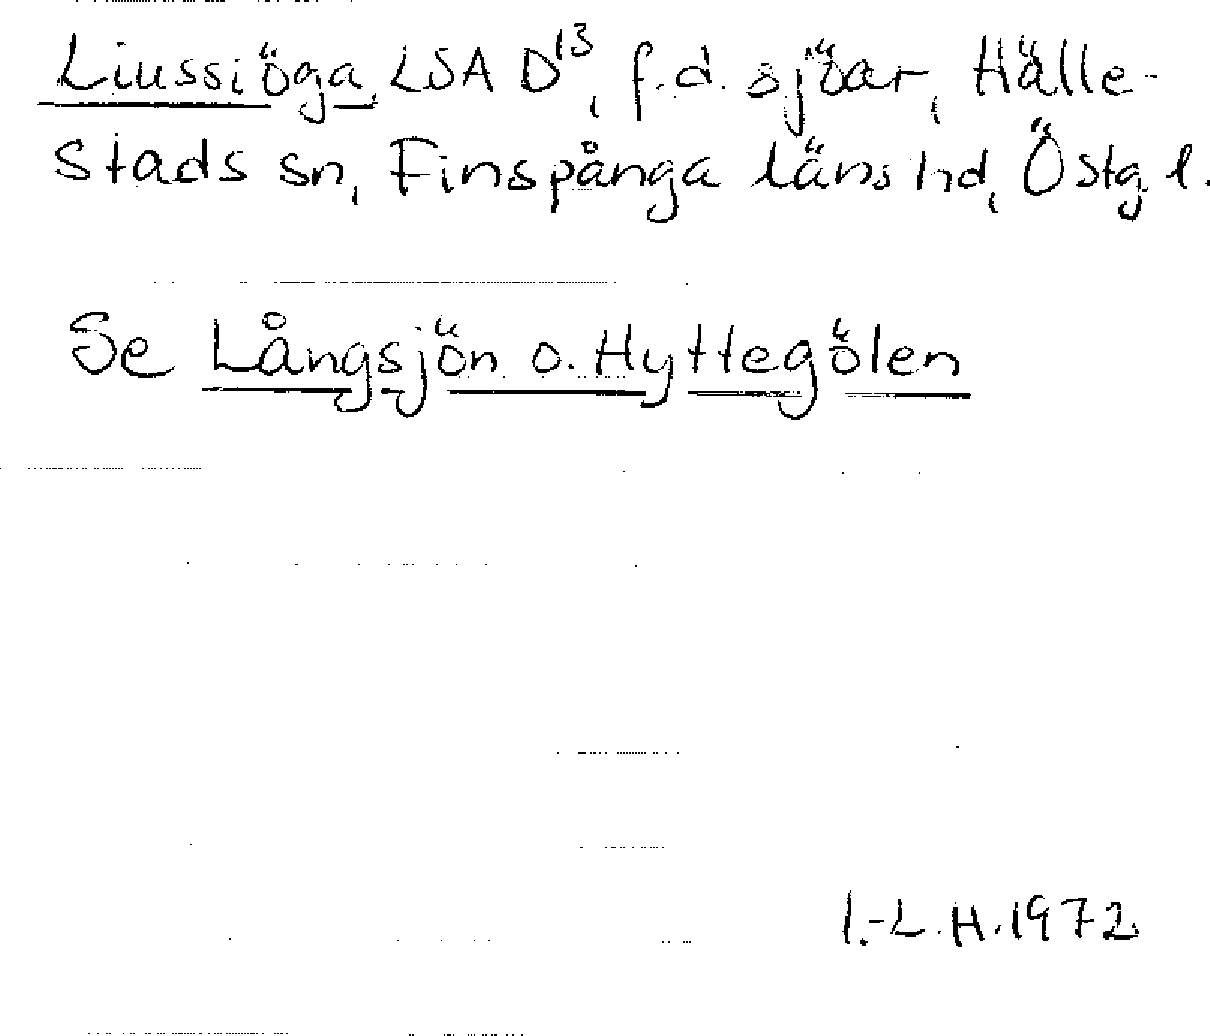 Liussiöga, LSA D13, f.d. sjöar, Hälle-
stads sn, Finspånga läns hd, Östg. l.
Se Långsjön o. Hyttegölen
I.-L. H. 1972